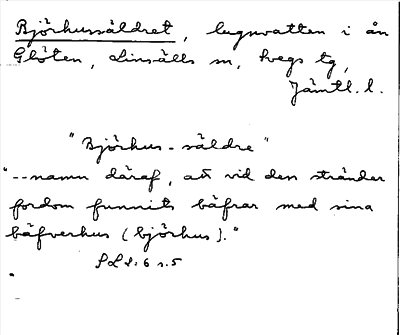 Björhussäldret, lugnvatten i ån
Glöten, Linsälls sn, Svegs tg,
Jämtl. l.
"Björhus-säldre"
"--namn däraf, att vid den stränder
fordom funnits bäfrar med sina
bäfverhus (björhus)."
SLS: 6 s.5